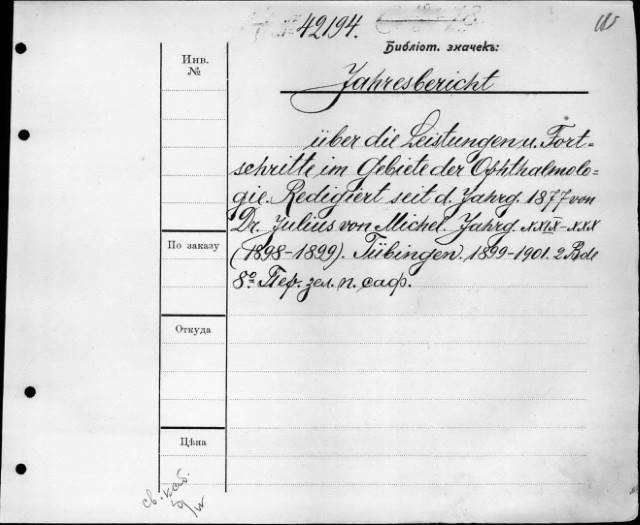 42194.
Библіот. значекъ:
Инв.
№
Jahresbericht
über die Leistungen u. Fort=
schritte im Gebiete der Ophthalmolo=
gie. Redigiert seit d. Jahrg. 1877 von
Dr. Julius von Michel. Jahrg. XXIX-XXX
(1898-1899). Tübingen. 1899-1901. 2 Bde
8º. Пер. зел. п. саф.
По заказу
Откуда
Цѣна
св. каб.